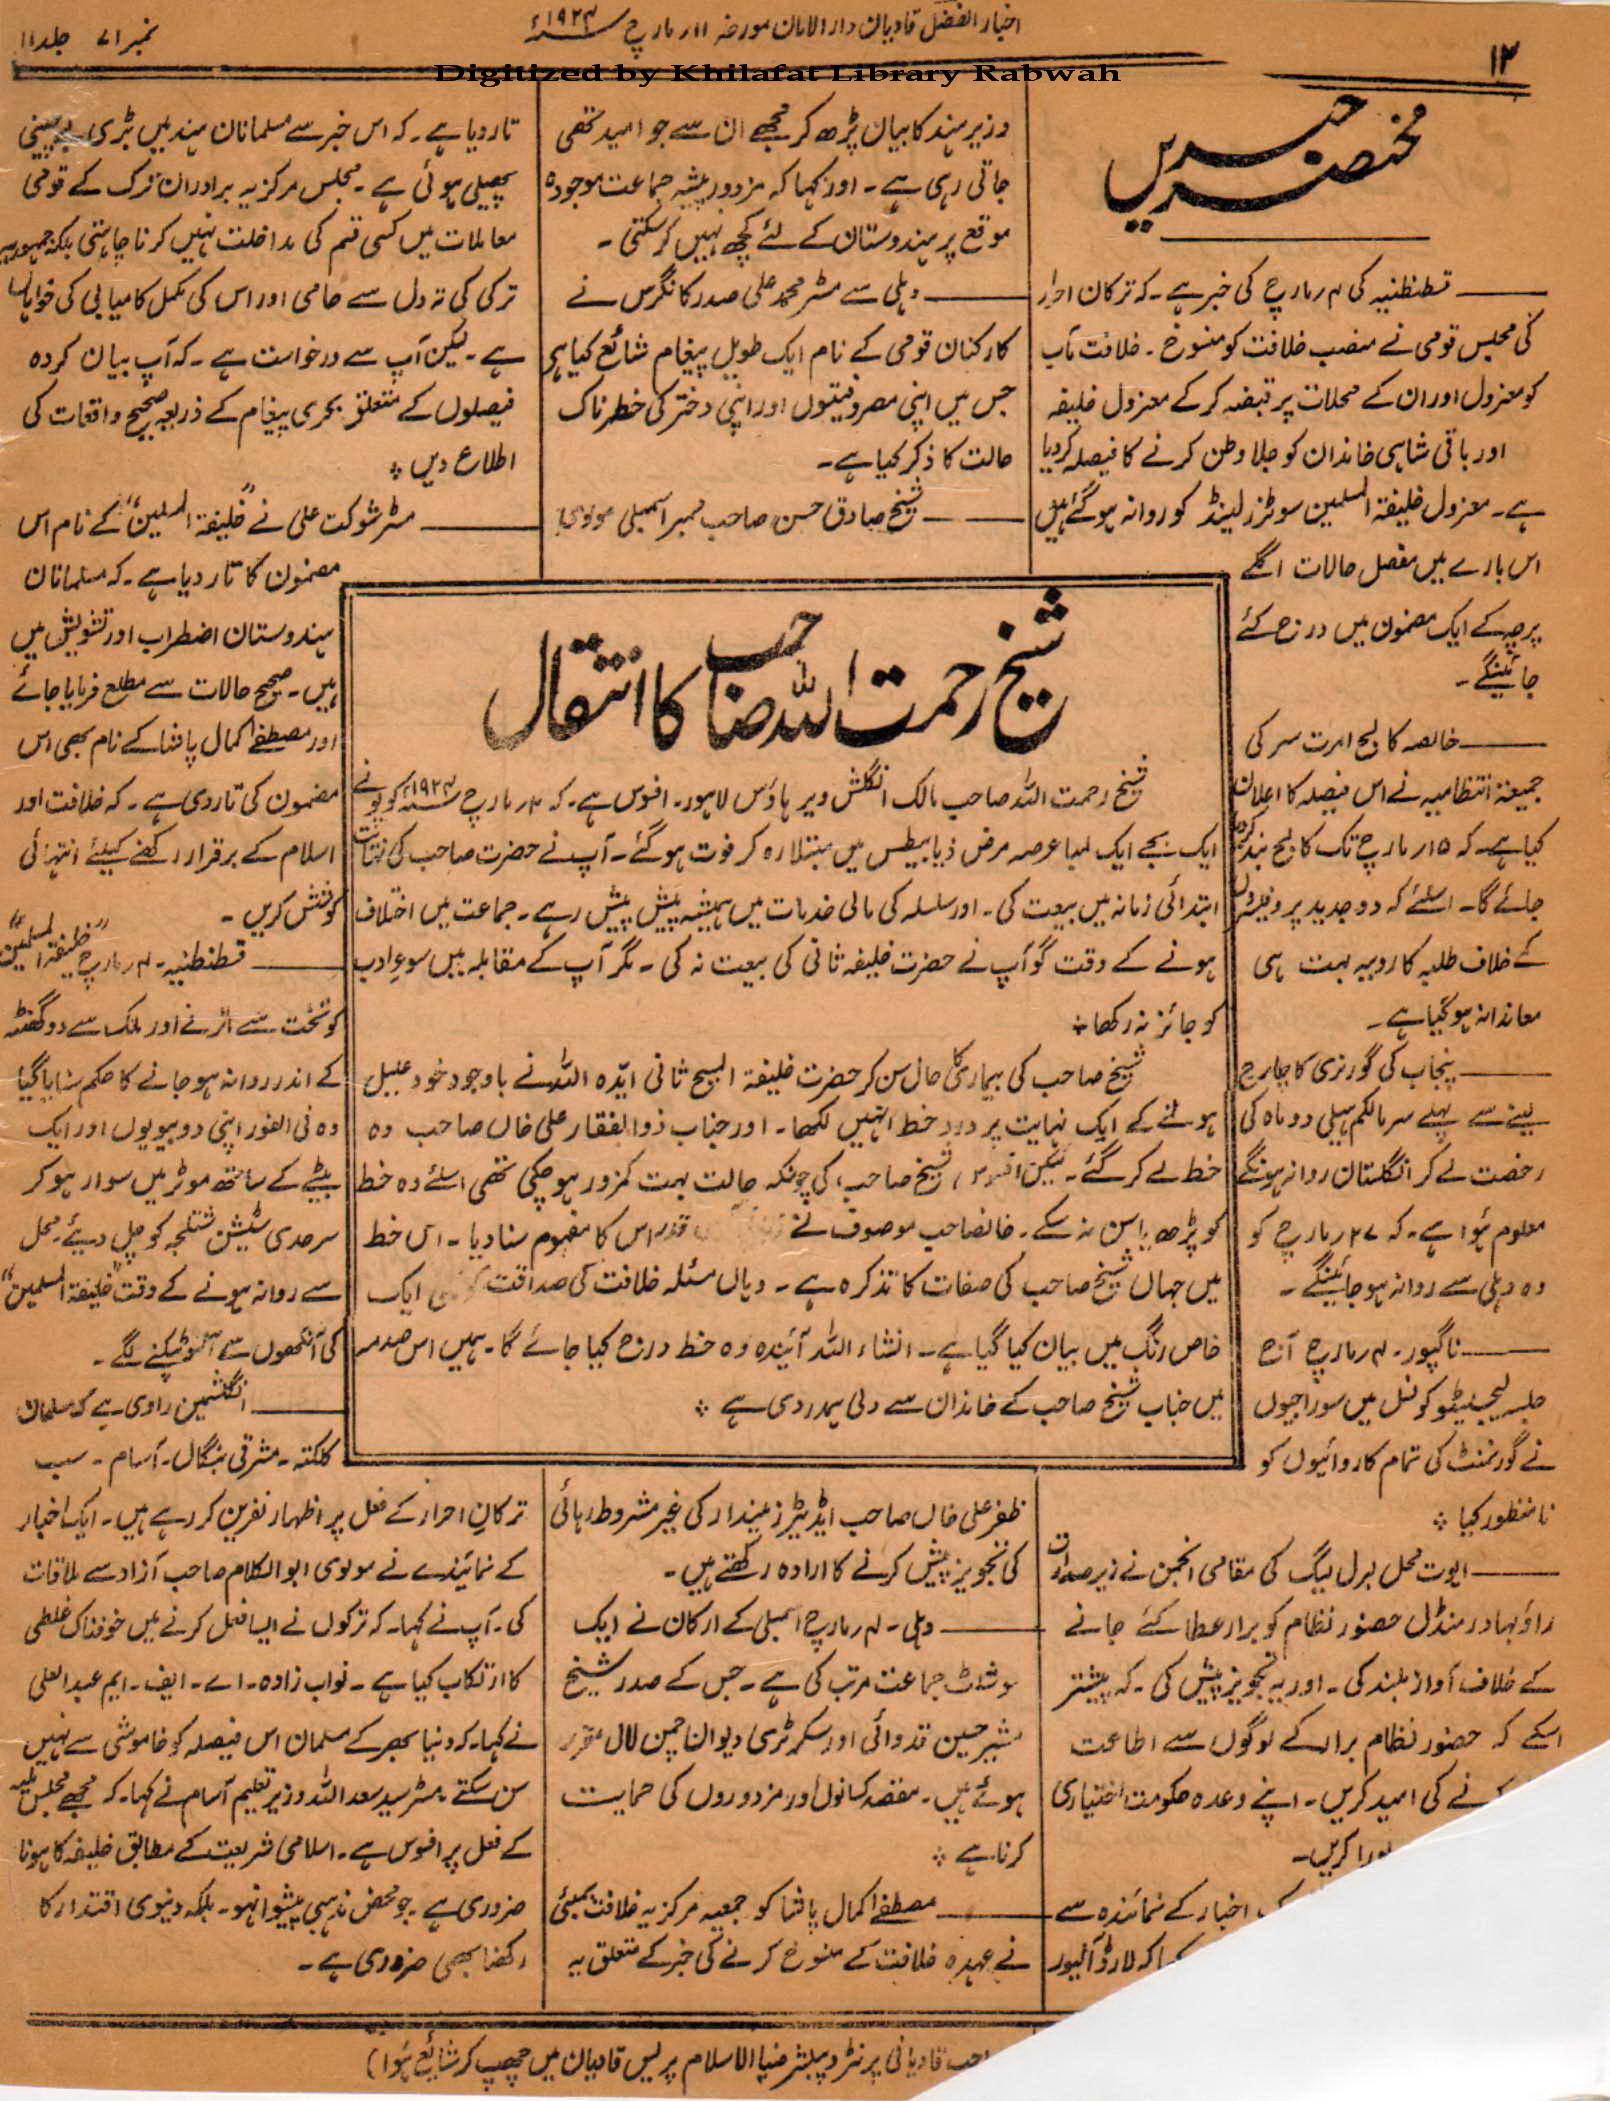 نمبر ۷۱ جلد ۱۱
اخبار الفضل قادیان دارالامان مورخہ ۱۱ر مارچ ۱۹۲۴ء
۱۲
Digitized by Khilafat Library Rabwah
مختصر خبریں
قسطنطنیہ کی ۴ر مارچ کی خبر ہے۔ کہ ترکان احرار
کی مجلس قومی نے منصب خلافت کو منسوخ۔ خلافت مآب
کو معزول اور ان کے محلات پر قبضہ کر کے معزول خلیفہ
اور باقی شاہی خاندان کو جلا وطن کرنے کا فیصلہ کر دیا
ہے۔ معزول خلیفۃ المسلمین سوئٹزرلینڈ کو روانہ ہو گئے ہیں
اس بارے میں مفصل حالات اگلے
پرچہ کے ایک مضمون میں درج کئے
جائینگے۔
خالصہ کالج امرت سر کی
جمیعۃ انتظامیہ نے اس فیصلہ کا اعلان
کیا ہے۔ کہ ۱۵ر مارچ تک کالج بند کر دیا
جائے گا۔ اسلئے کہ دو جدید پروفیسروں
کے خلاف طلبہ کا رویہ بہت ہی
معاندانہ ہو گیا ہے۔
پنجاب کی گورنری کا چارج
لینے سے پہلے سر مالکم ہیلی دو ماہ کی
رخصت لے کر انگلستان روانہ ہونگے
معلوم ہوا ہے۔ کہ ۲۷ر مارچ کو
وہ دہلی سے روانہ ہو جائینگے۔
ناگپور۔ ۴ر مارچ آج
جلسہ لیجسلیٹو کونسل میں سوراجیوں
نے گورنمنٹ کی تمام کاروائیوں کو
نامنظور کیا ؞
ایوت محل لبرل لیگ کی مقامی انجمن نے زیر صدارت
راؤ بہادر منڈل حضور نظام کو برار عطا کئے جانے
کے خلاف آواز بلند کی۔ اور یہ تجویز پیش کی۔ کہ پیشتر
اسکے کہ حضور نظام برار کے لوگوں سے اطاعت
کرنے کی امید کریں۔ اپنے وعدہ حکومت اختیاری
پورا کریں۔
اخبار کے نمائندہ سے
کہا کہ لارڈ آلیور
وزیر ہند کا بیان پڑھ کر مجھے ان سے جو امید تھی
جاتی رہی ہے۔ اور کہا کہ مزدور پیشہ جماعت موجودہ
موقع پر ہندوستان کے لئے کچھ نہیں کر سکتی۔
دہلی سے مسٹر محمد علی صدر کانگرس نے
کارکنان قومی کے نام ایک طویل پیغام شائع کیا ہی
جس میں اپنی مصروفیتوں اور اپنی دختر کی خطرناک
حالت کا ذکر کیا ہے۔
شیخ صادق حسن صاحب ممبر اسمبلی مولوی
شیخ رحمت اللہ صاحب کا انتقال
شیخ رحمت اللہ صاحب مالک انگلش ویر ہاؤس لاہور۔ افسوس ہے۔ کہ ۱۰ر مارچ ۱۹۲۴ء کو پونے
ایک بجے ایک لمبا عرصہ مرض ذیابیطس میں مبتلا رہ کر فوت ہو گئے۔ آپ نے حضرت صاحب کی نہایت
ابتدائی زمانہ میں بیعت کی۔ اور سلسلہ کی مالی خدمات میں ہمیشہ پیش پیش رہے۔ جماعت میں اختلاف
ہونے کے وقت گو آپ نے حضرت خلیفہ ثانی کی بیعت نہ کی۔ مگر آپ کے مقابلہ میں سوء ادب
کو جائز نہ رکھا ؞
شیخ صاحب کی بیماری کا حال سن کر حضرت خلیفۃ المسیح ثانی ایدہ اللہ نے باوجود خود علیل
ہونے کے ایک نہایت پر درد خط انہیں لکھا۔ اور جناب ذوالفقار علی خاں صاحب وہ
خط لے کر گئے۔ لیکن افسوس، شیخ صاحب، کی چونکہ حالت بہت کمزور ہو چکی تھی اسلئے وہ خط
کو پڑھ یا سن نہ سکے۔ خانصاحب موصوف نے قدر اس کا مفہوم سنا دیا۔ اس خط
میں جہاں شیخ صاحب کی صفات کا تذکرہ ہے۔ وہاں مسئلہ خلافت کی صداقت کو بھی ایک
خاص رنگ میں بیان کیا گیا ہے۔ انشاء اللہ آئندہ وہ خط درج کیا جائے گا۔ ہمیں اس صدمہ
میں جناب شیخ صاحب کے خاندان سے دلی ہمدردی ہے ؞
ظفر علی خاں صاحب ایڈیٹر زمیندار کی غیر مشروط رہائی
کی تجویز پیش کرنے کا ارادہ رکھتے ہیں۔
دہلی۔ ۴ر مارچ اسمبلی کے ارکان نے ایک
سوشلسٹ جماعت مرتب کی ہے۔ جس کے صدر شیخ
مشیر حسین قدوائی اور سکرٹری دیوان چمن لال مقرر
ہوئے ہیں۔ مقصد کسانوں اور مزدوروں کی حمایت
کرنا ہے ؞
مصطفےٰ کمال پاشا کو جمعیہ مرکزیہ خلافت بمبئی
نے عہدہ خلافت کے منسوخ کرنے کی خبر کے متعلق یہ
تار دیا ہے۔ کہ اس خبر سے مسلمانان ہند میں بڑی بے چینی
پھیلی ہوئی ہے۔ مجلس مرکزیہ برادران ترک کے قومی
معاملات میں کسی قسم کی مداخلت نہیں کرنا چاہتی بلکہ جمہوریہ
ترکی کی تہ دل سے حامی اور اس کی مکمل کامیابی کی خواہاں
ہے۔ لیکن آپ سے درخواست ہے۔ کہ آپ بیان کردہ
فیصلوں کے متعلق بحری پیغام کے ذریعہ صحیح واقعات کی
اطلاع دیں ؞
مسٹر شوکت علی نے ”خلیفۃ المسلمین“ کے نام اس
مضمون کا تار دیا ہے۔ کہ مسلمانان
ہندوستان اضطراب اور تشویش میں
ہیں۔ صحیح حالات سے مطلع فرمایا جائے
اور مصطفےٰ کمال پاشا کے نام بھی اس
مضمون کی تار دی ہے۔ کہ خلافت اور
اسلام کے برقرار رکھنے کیلئے انتہائی
کوشش کریں۔
قسطنطنیہ۔ ۴ر مارچ ”خلیفۃ المسلمین“
کو تخت سے اترنے اور ملک سے دو گھنٹہ
کے اندر روانہ ہو جانے کا حکم سنایا گیا
وہ فی الفور اپنی دو بیویوں اور ایک
بیٹے کے ساتھ موٹر میں سوار ہو کر
سرحدی سٹیشن شتلجہ کو چل دیئے۔ محل
سے روانہ ہونے کے وقت ”خلیفۃ المسلمین“
کی آنکھوں سے آنسو ٹپکنے لگے۔
انگلشمین راوی ہے کہ مسلمان
کلکتہ۔ مشرقی بنگال۔ آسام۔ سب
ترکان احرار کے فعل پر اظہار نفرین کر رہے ہیں۔ ایک اخبار
کے نمائندے نے مولوی ابوالکلام صاحب آزاد سے ملاقات
کی۔ آپ نے کہا۔ کہ ترکوں نے ایسا فعل کرنے میں خوفناک غلطی
کا ارتکاب کیا ہے۔ نواب زادہ۔ اے۔ ایف۔ ایم عبد العلی
نے کہا۔ کہ دنیا بھر کے مسلمان اس فیصلہ کو خاموشی سے نہیں
سن سکتے۔ مسٹر سید سعد اللہ وزیر تعلیم آسام نے کہا۔ کہ مجھے مجلس ملیہ
کے فعل پر افسوس ہے۔ اسلامی شریعت کے مطابق خلیفہ کا ہونا
ضروری ہے۔ جو محض مذہبی پیشوا نہ ہو۔ بلکہ دنیوی اقتدار کا
رکھنا بھی ضروری ہے۔
صاحب قادیانی پرنٹر و پبلشر ضیاء الاسلام پریس قادیان میں چھپ کر شائع ہوا)